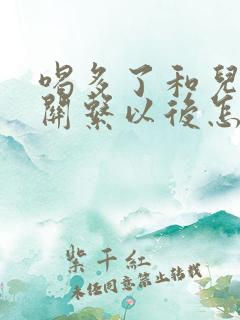 喝多了和兒
關繫以後怎
紫千紅
未经同意禁止转载